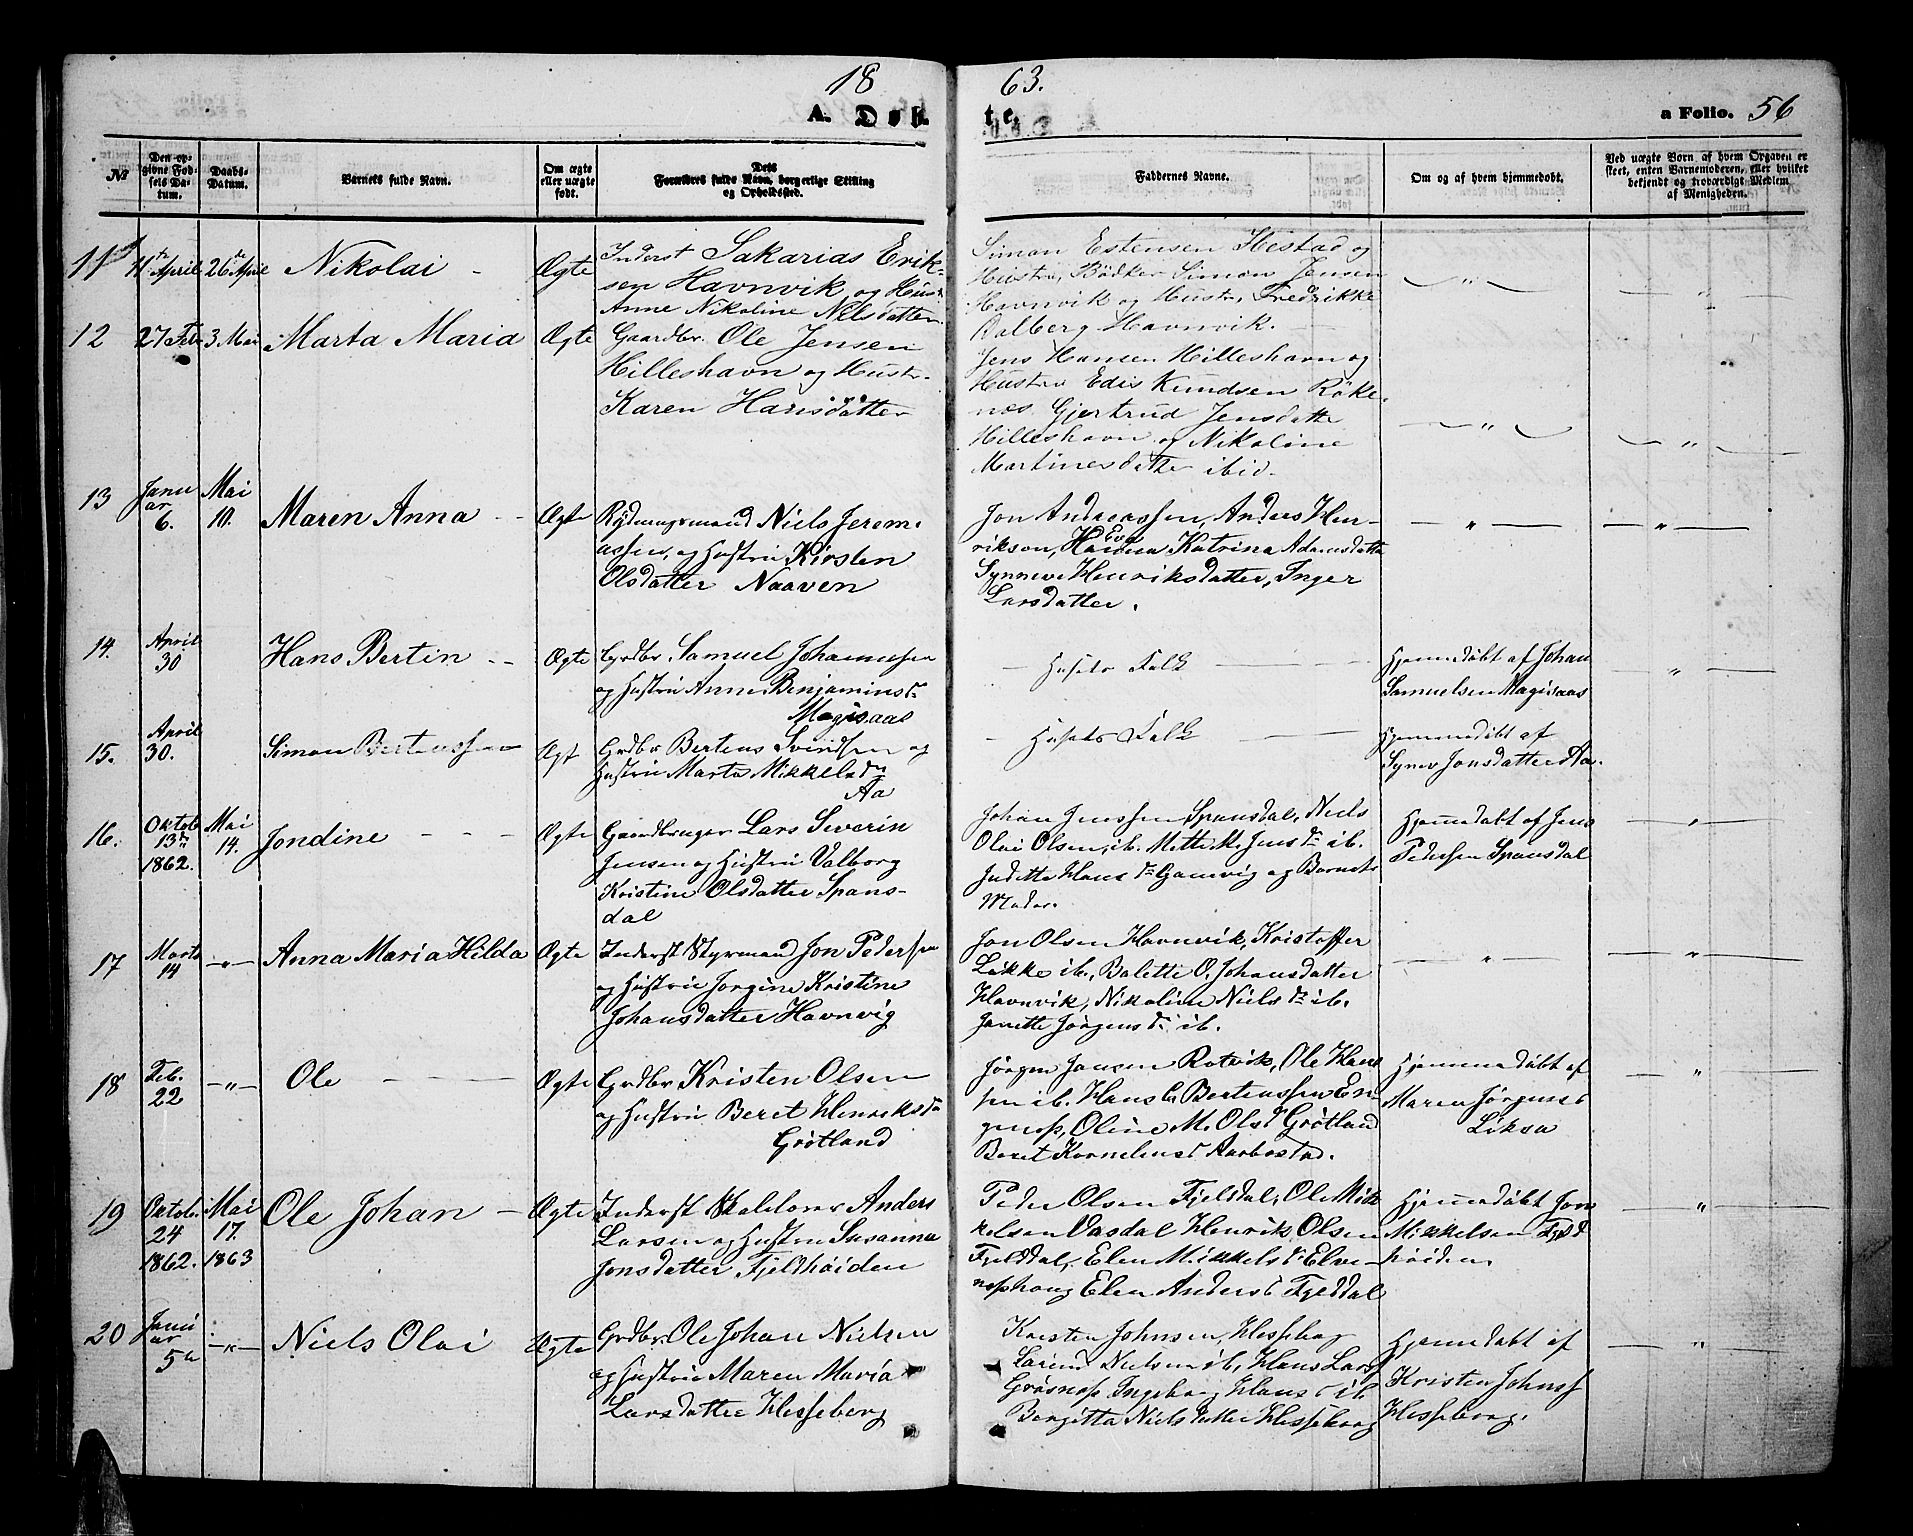 18 63.
A. Døb te. a Folio. 56
No
Den op-
givne Fød-
sels Da-
tum.
Daabs-
Datum.
Barnets fulde Navn.
Om ægte
eller uægte
født.
Dets
Forældres fulde Navn, borgerlige Stilling
og Opholdssted.
Faddernes Navne.
Om og af hvem hjemmedøbt.
Ved uægte Børn af hvem Opgaven er
skeet, enten Barnemoderen, eller hvilket
bekjendt og troværdigt Medlem
af Menigheden.
11 11te April 26de April Nikolai - Ægte
Inderst Sakarias Erik-
sen Havnvik og Hust
Anne Nikoline Nilsdatter
Simon Estensen Hestad og
Hustru, Bødker Simon Jensen
Havnvik og Hustr. Fredrikke
Dalberg Havnvik.
12 27 Feb 3 Mai Marta Maria Ægte
Gaardbr. Ole Jensen
Hilleshavn og Hustr.
Karen Hansdatter
Jens Hansen Hilleshavn og
Hustru Edis Knudsen Røke-
næs. Gjertrud Jensdatte
Hilleshavn og Nikoline
Martinesdatter ibid.
13 Janu
ar
6. Mai
10. Maren Anna - - Ægte
Rydningsmand Niels Jerem-
iassen, og Hustru Kirsten
Olsdatter Naaven
Jon Andreassen, Anders Hen-
rikson, Eva Katrina Adamsdatte
Synneve Henriksdatter, Inger
Larsdatter.
14. April
30 Hans Bertin - - Ægte
Grdbr. Samuel Johannesen
og Hustru Anne Benjamins dr
Magisaas
- Husets Folk
Hjemmedøbt af Johan
Samuelsen Magisaas
15. April
30. Simon Berteussen Ægt
Grdbr Berteus Svendsen og
Hustru Marta Mikkels dr
Aa
- Husets Folk
Hjemmedøbt af
Synev Jonsdatter Aa.
16. Oktob
13de
1862. Mai
14. Jondine - - - Ægte
Gaardbruger Lars Severin
Jensen og Hustru Valborg
Kristine Olsdatter Spans-
dal
Johan Jenssen Spansdal, Niels
Olai Olsen, ib. Mette M. Jens dr ib.
Juditta Hans dr Gamvig og Barnets
Moder.
Hjemmedøbt af Jens
Pedersen Spansdal
17 Marts
14 -"- Anna Maria Hilda Ægte
Inderst Styrmand Jon Pedersen
og Hustru Jorgine Kristine
Johansdatter Havnvig
Jon Olsen Havnvik, Kristoffer
Løkke ib., Balette O. Johansdatter
Havnvik, Nikoline Niels dr ib.
Janette Jørgens dr ib.
18 Feb.
22 -"- Ole Ægte
Grdbr Kristen Olsen
og Hustru Beret Henriks dr
Grøtland
Jørgen Jansen Rotvik, Ole Han-
sen ib. Hans C Bertenssen En-
genæs, Oline M. Ols d Grøtland
Beret Kornelius d Aarbostad.
Hjemmedøbt af
Maren Jørgens d
Liksa
19 Oktob.
24
1862. Mai
17.
1863 Ole Johan - Ægte
Inderst Skolelærer Anders
Larsen og Hustru Susanna
Jonsdatter Fjeldhøiden
Peder Olsen Fjelsdal, Ole Mik-
kelsen Vasdal Henrik Olsen
Fjelddal, Elen Mikkels d Elve-
næshaug Elen Anders d Fjeldal
Hjemmedøbt Jon
Mikkelsen Fjeld
høiden.
20 Janu
ar
5te -"- Niels Olai Ægte
Grdbr. Ole Johan Nielsen
og Hustru Maren Maria
Larsdatter Hesseberg
Kristen Johnsen, Hesseberg
Larsine Nielsen ib, Hans Lars
Grøsnæs Ingeborg Hans d ib
Bergitta Nielsdatter Hesseberg
Hjemmedøbt af
Kristen Johns
Hesseberg.